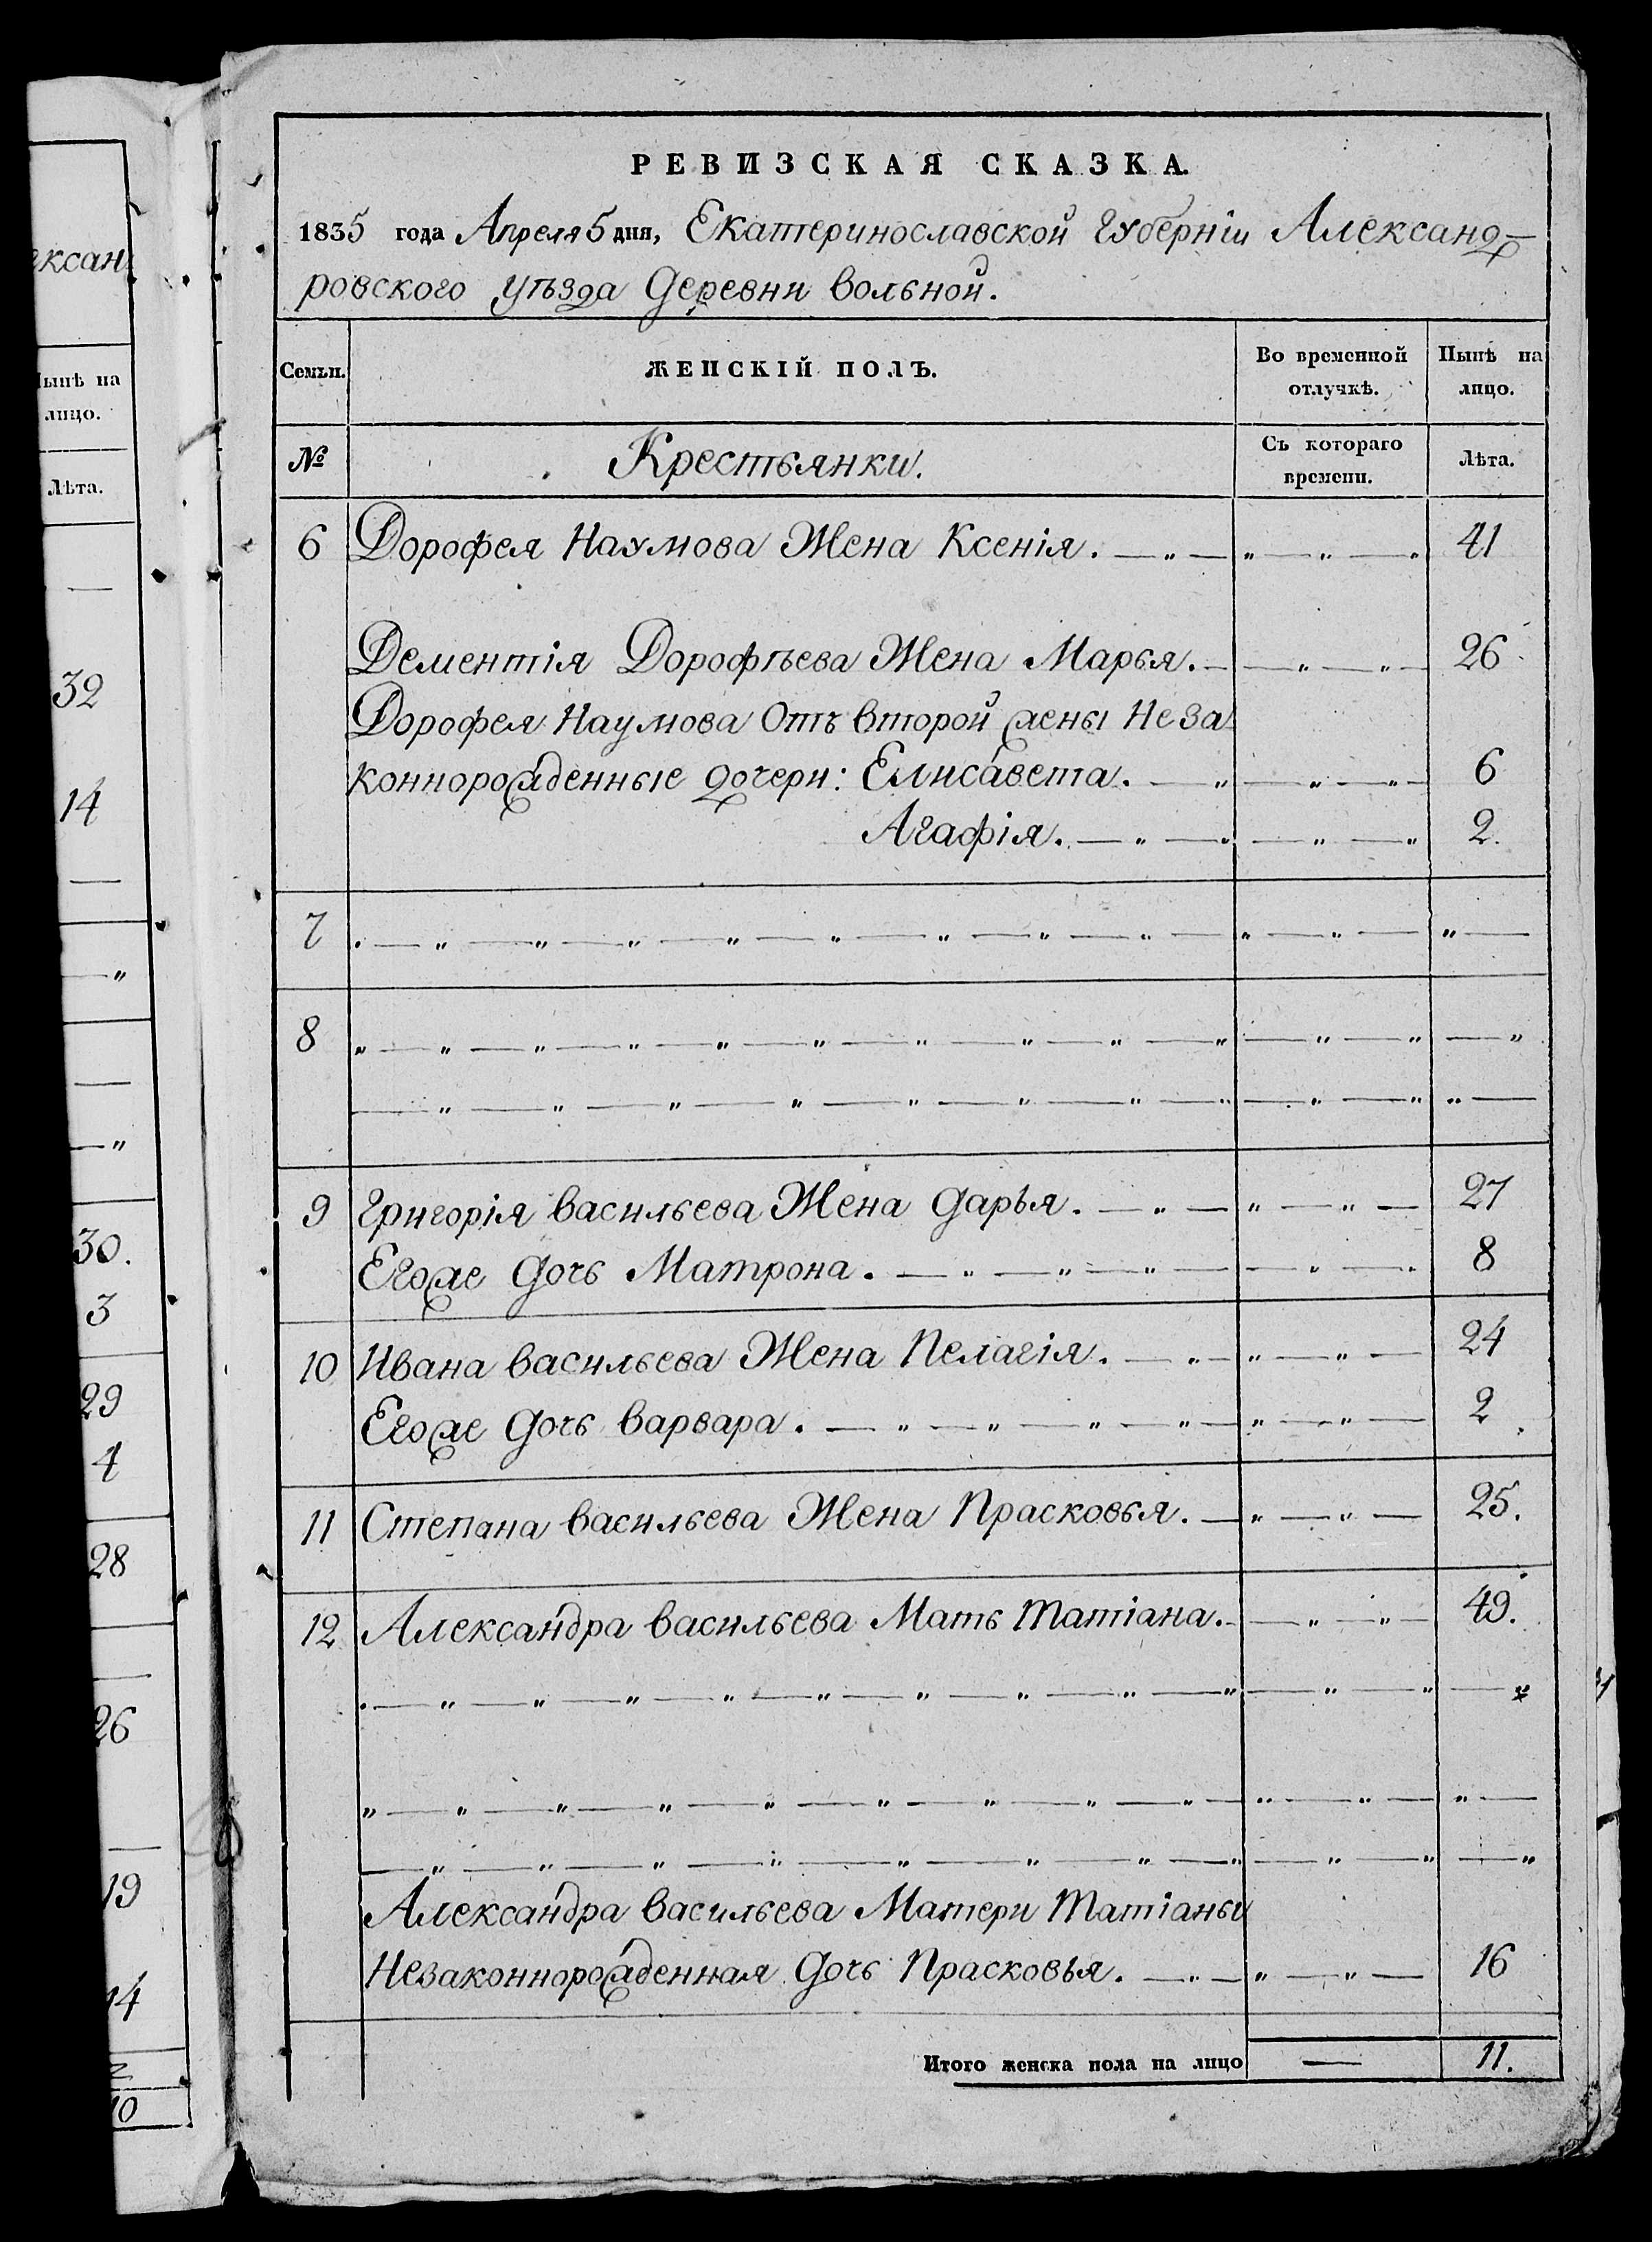 РЕВИЗСКАЯ СКАЗКА.
1835 года Апреля 5 дня, Екатеринославской Губерніи Александ-
ровского уѣзда Деревни вольной.
Семьи.
ЖЕНСКІЙ ПОЛЪ.
Во временной отлучкѣ.
Нынѣ на лицо.
№
Крестьянки.
Съ котораго времени.
Лѣта.
6 Дорофея Наумова Жена Ксенія. — „ — „ — „ — „ 41
Дементія Дорофѣева Жена Марья. — — „ — „ — 26
Дорофея Наумова Отъ второй жены Неза
коннорожденные дочери: Елисавета. — „ — „ — „ — 6
Агафія. — „ — „ — „ — „ 2.
7 . — „ — „ — „ — „ — „ — „ — „ — „ — „ — „ — „ —
8 „ — „ — „ — „ — „ — „ — „ — „ — „ — „ — „ — „ — „
— „ — „ — „ — „ — „ — „ — „ — „ — „ — „ „ —
9 Григорія васильева Жена Дарья. — „ — „ — „ — 27
Егоже Дочь Матрона. — „ — „ — „ — — „ — „ 8
10 Ивана васильева Жена Пелагія. — „ — „ — „ — 24
Егоже Дочь варвара. — „ — „ — „ — „ — „ — „ — 2
11 Степана васильева Жена Прасковья. — „ — „ — 25.
12 Александра васильева Мать Татіана. — — „ — „ — 49.
. — „ — „ — „ — „ — „ — „ — „ — „ — „ — „ — „ — „
„ — „ — „ — „ — „ — „ — „ — „ — „ — „ — „ — „ —
— „ — „ — „ — „ — „ — „ — „ — „ — „ — „ — „
Александра васильева Матери Татіаны
Незаконнорожденная Дочь Прасковья. — „ — „ — „ — 16
Итого женска пола на лицо — 11.
ексан
Нынѣ на
лицо.
Лѣта.
—
32
14
—
— „
—
— „
30.
3
29
4
28
—
26
—
19
14
10